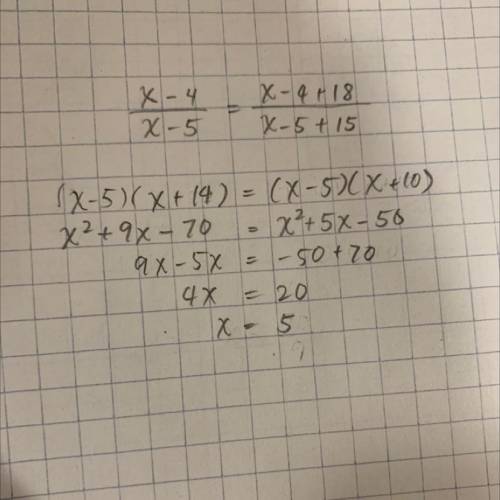 x-4/x-5 = x-4+18/x-5+15
(x-5)(x+14) = (x-5)(x+10)
x²+9x-70 = x²+5x-50
9x-5x = -50+70
4x = 20
x = 5
?